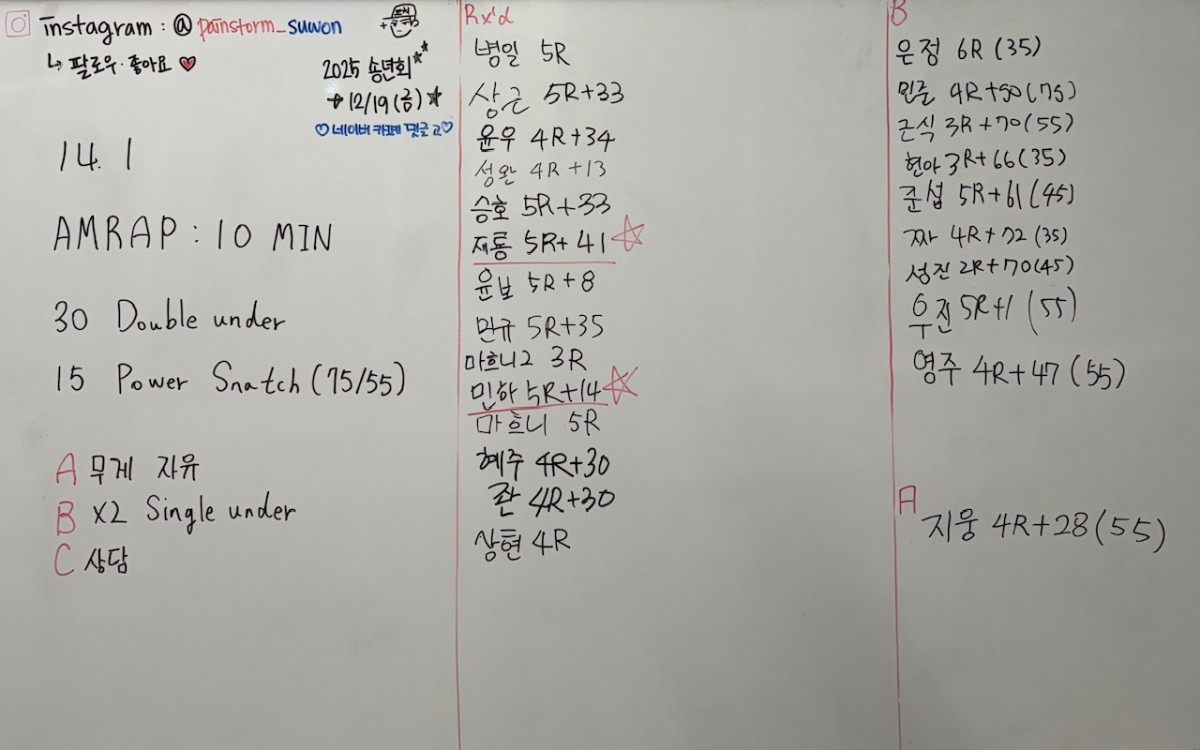 instagram : @ painstorm_suwon
↳ 팔로우·좋아요 ♥
2025 송년회
→ 12/19 (금)
♡ 네이버 카페 댓글 고 ♡
14. 1
AMRAP : 10 MIN
30 Double under
15 Power Snatch (75/55)
A 무게 자유
B X2 Single under
C 상담
Rx'd
병일 5R
상근 5R+33
윤우 4R+34
성완 4R+13
승호 5R+33
재룡 5R+41
윤보 5R+8
민규 5R+35
마흐니2 3R
민하 5R+14
마흐니 5R
혜주 4R+30
4R+30
상현 4R
B
은정 6R (35)
민준 4R+50 (75)
근식 3R+70 (55)
현아 3R+66 (35)
준섭 5R+61 (45)
짜 4R+72 (35)
성진 2R+70 (45)
우진 5R+1 (55)
영주 4R+47 (55)
A
지웅 4R+28 (55)